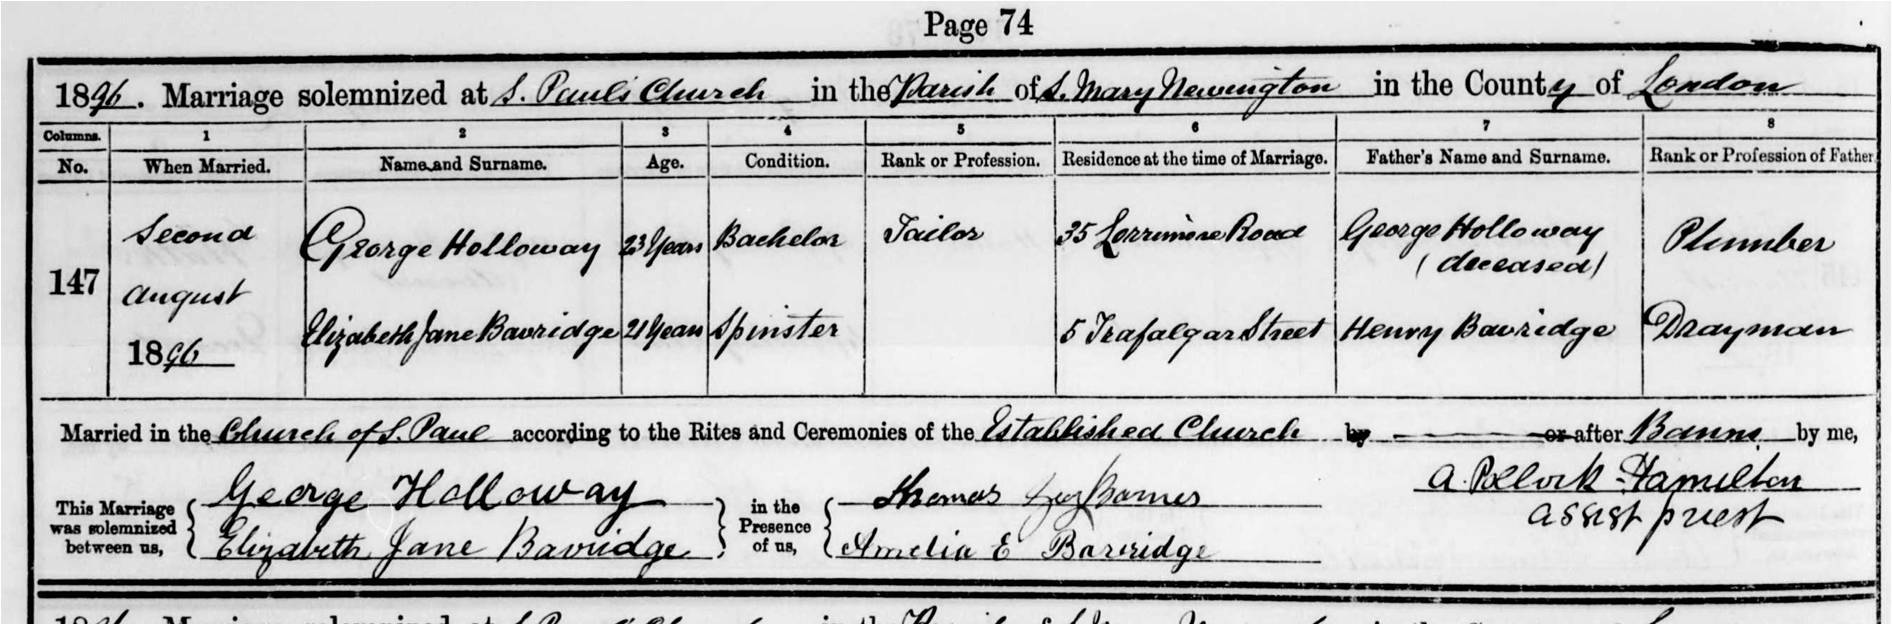 Page 74
1896. Marriage solemnized at S. Paul's Church in the Parish of S. Mary Newington in the County of London
Columns. 1 2 3 4 5 6 7 8
No. When Married. Name and Surname. Age. Condition. Rank or Profession. Residence at the time of Marriage. Father's Name and Surname. Rank or Profession of Father
Second George Holloway 23 Years Bachelor Tailor 35 Lorrimore Road George Holloway Plumber
(deceased)
147
august
Elizabeth Jane Bavridge 21 Years Spinster 5 Trafalgar Street Henry Bavridge Drayman
1896
Married in the Church of S. Paul according to the Rites and Ceremonies of the Established Church by or after Banns by me,
This Marriage was solemnized between us, George Holloway in the Presence of us, Thomas Barnes A. Pollock-Hamilton
Elizabeth Jane Bavridge Amelia E Bavridge assist priest